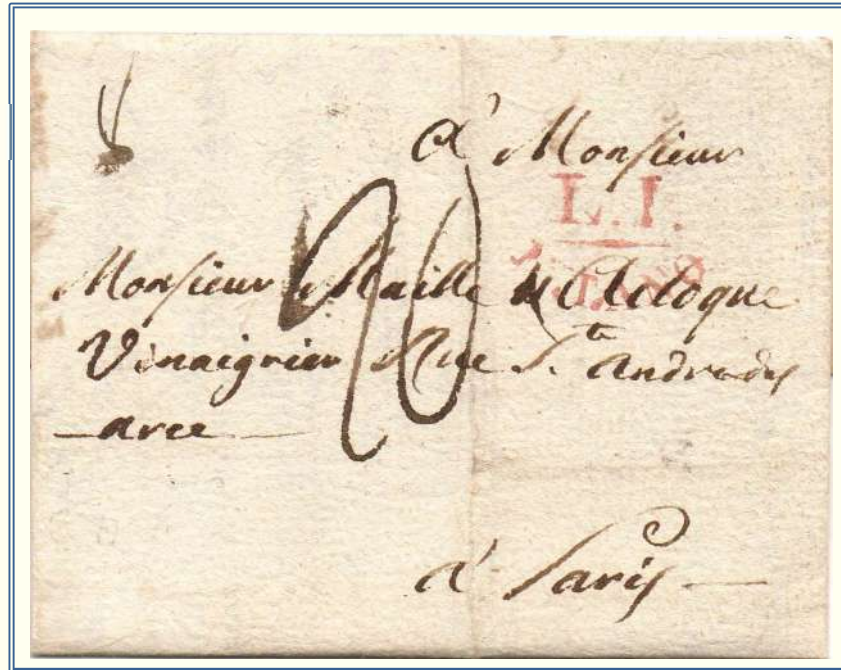 a' Monsieur
L.I.
Monsieur Maille & Acloque
Vinaigrier Rue S.te andre des
arce
20
a' Paris